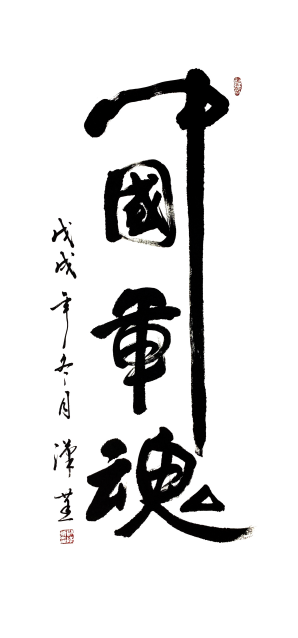 中國軍魂
戊戌年冬月漢